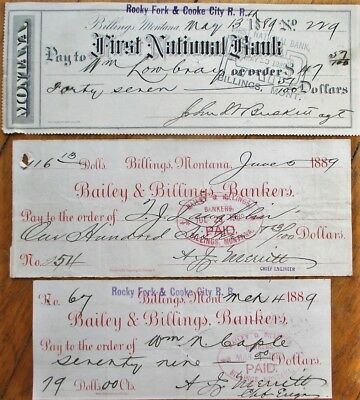 Rocky Fork & Cooke City R. R.
Billings, Montana, May 13th 1889 No 229
MONTANA
Pay to First National Bank
Wm or order $ 47 57/100
Forty seven 57/100 Dollars
NATIONAL BANK,
BILLINGS, MONT.
John W agt
$116 13 Dolls. Billings, Montana, June 5 1889
Bailey & Billings, Bankers.
Pay to the order of T. J.
One Hundred 13/100 Dollars.
BAILEY & BILLINGS
BANKERS.
PAID
BILLINGS, MONTANA
No. 254 A J Merritt
CHIEF ENGINEER
Rocky Fork & Cooke City R. R.
No. 67 Billings, Mont. Mch 4 1889
Bailey & Billings, Bankers.
Pay to the order of Wm N Caple
Seventy nine 00 Dollars
PAID
79 Dolls 00 Cts. A J Merritt
Chf Engr